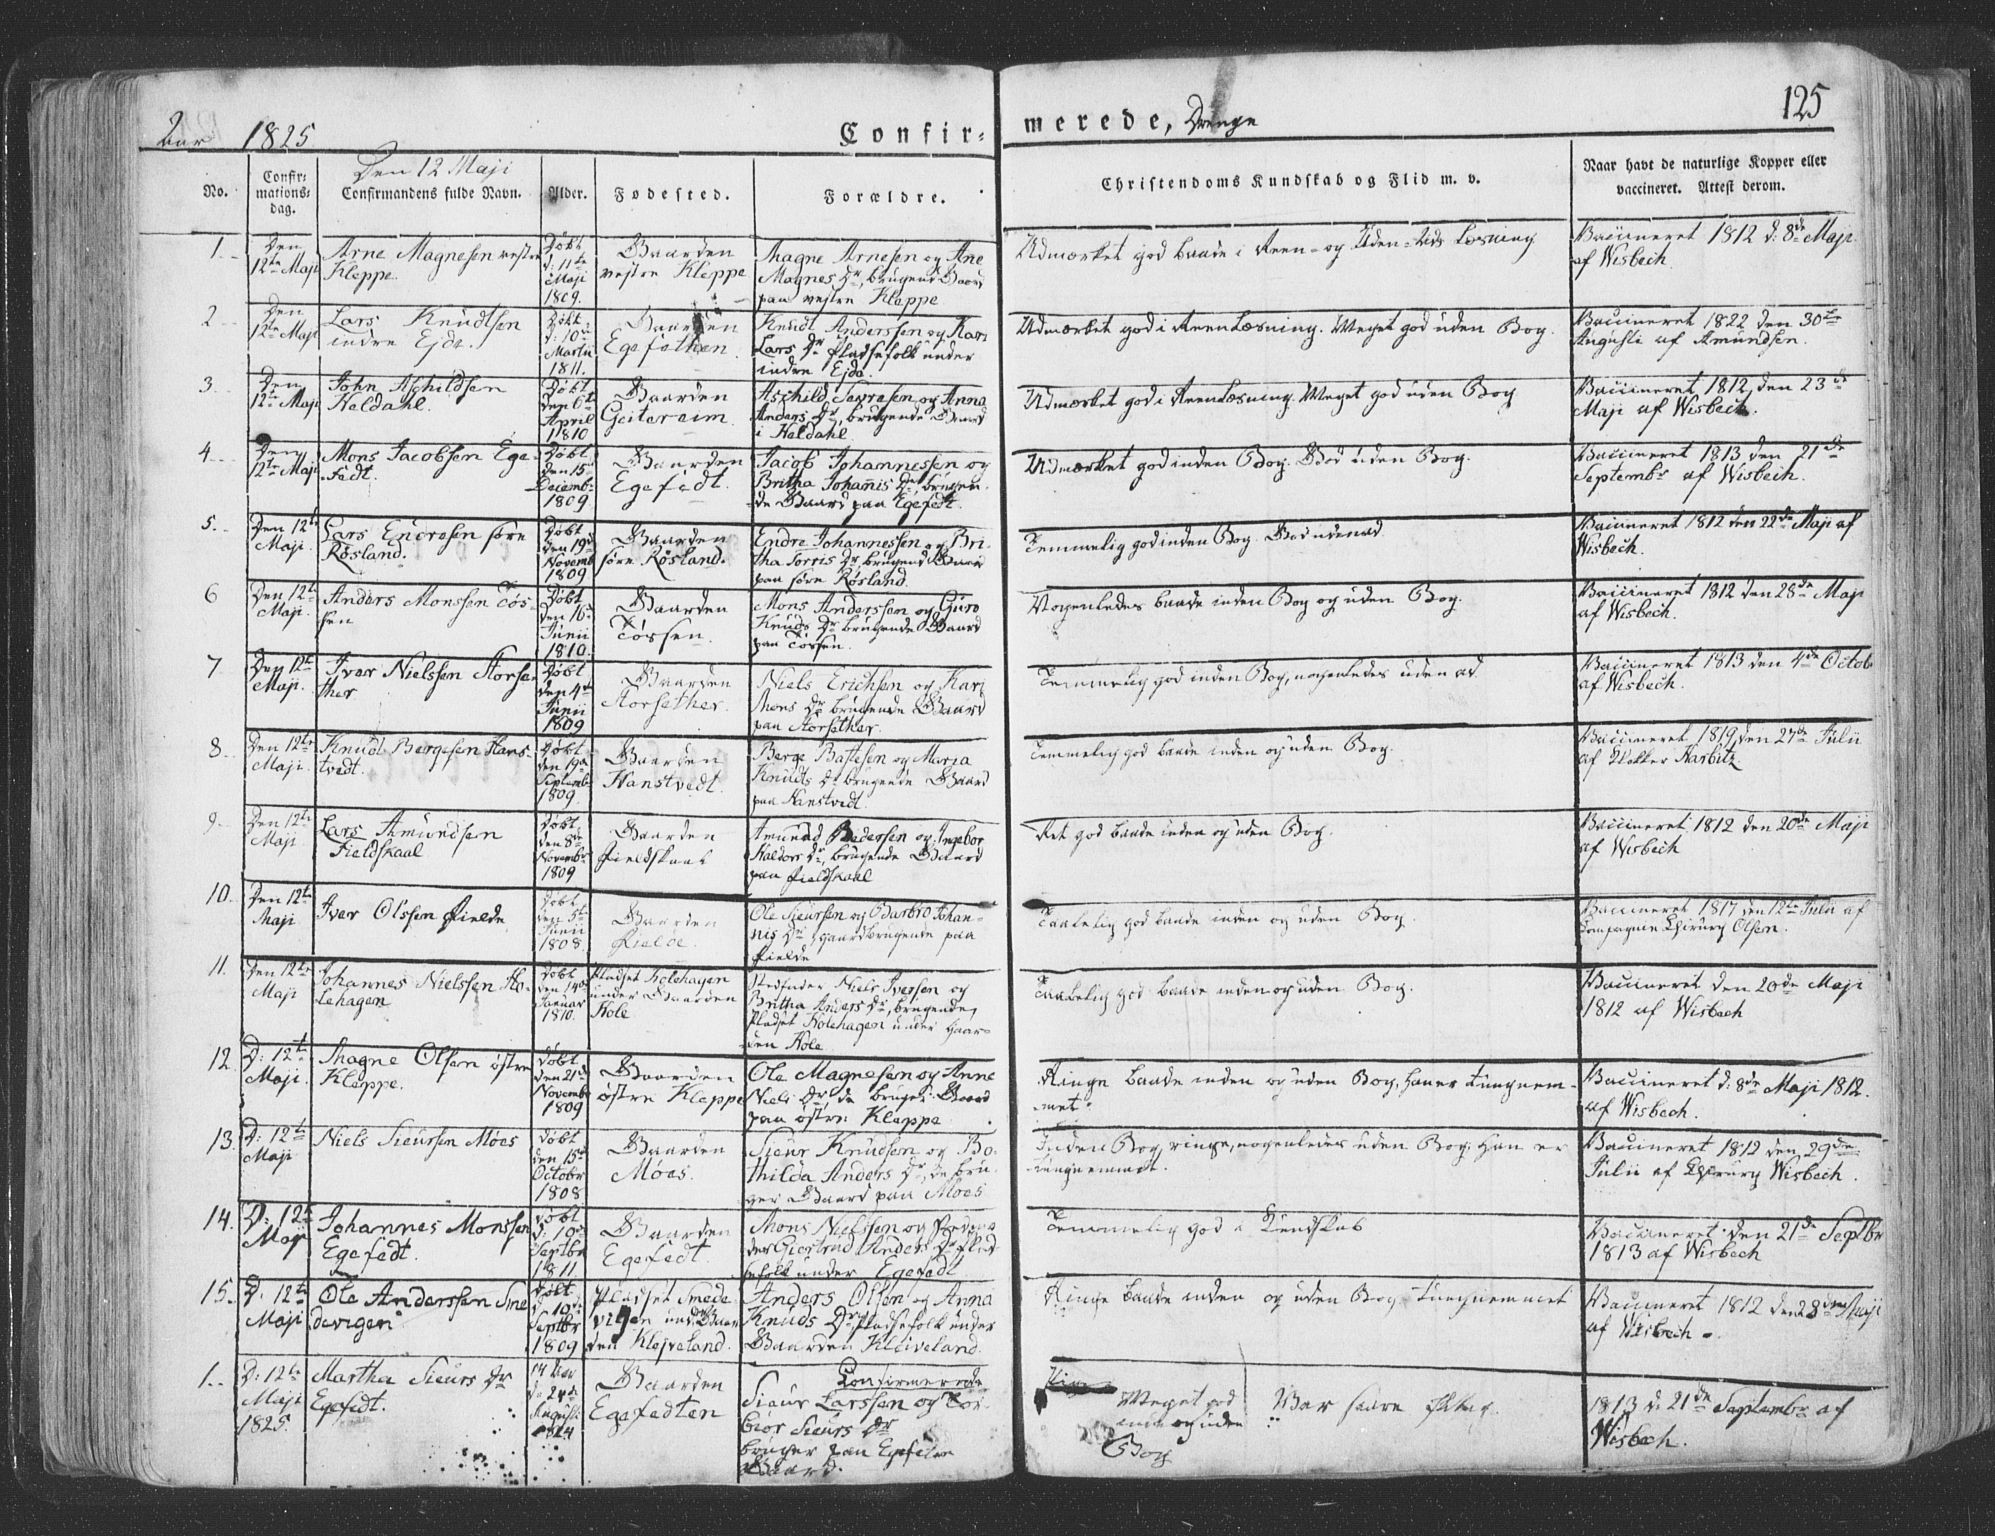 Aar 1825
Confir-
merede, Drenge
125
Den 12 Maji
No.
Confir-
mations-
dag.
Confirmandens fulde Navn.
Alder.
Fødested.
Forældre.
Christendoms Kundskab og Flid m. v.
Naar havt de naturlige Kopper eller
vaccineret. Attest derom.
1.
Den
12te Maji
Arne Magnesen vestre
Kleppe.
Døbt
d: 11te
Maji
1809.
Gaarden
vestre Kleppe
Magne Arnesen og Ane
Magnes Dr, brugend Gaard
paa vestre Kleppe
Udmærket god baade i Reen- og Uden-ads Læsning
Vaccineret 1812 d: 8de Maji
af Wisbech.
2
Den
12te Maji
Lars Knudtsen
indre Ejde.
Døbt
d: 10de
Martii
1811.
Gaarden
Egefathen.
Knudt Anderssen og Kari
Lars Dr Pladsefolk under
indre Ejde.
Udmærket god i Reenlæsning. Meget god uden Bog.
Vaccineret 1822 den 30te
Augusti af Amundsen.
3
Den
12te Maji
John Aschildsen
Heldahl.
Døbt
den 6te
April
1810
Gaarden
Geitereim
Aschild Sevresen og Anna
Anders Dr, brugende Gaard
i Heldahl.
Udmærket god i Reenlæsning. Meget god uden Bog
Vaccineret 1812 den 23de
Maji af Wisbech.
4
Den
12te Maji
Mons Jacobsen Ege-
fedt.
Døbt
den 15de
Decembr
1809
Gaarden
Egefedt.
Jacob Johannessen og
Britha Johanis Dr, brugen-
de Gaard paa Egefedt.
Udmærket god inden Bog. God uden Bog.
Vaccineret 1813 den 21de
Septembr af Wisbech.
5.
Den 12te
Maji.
Lars Endresen søre
Røsland.
Døbt
den 19de
Novemb
1809
Gaarden
søre Røsland.
Endre Johannessen og Bri-
tha Torris Dr brugend Gaard
paa søre Røsland.
Temmelig god inden Bog. God udenad
Vaccineret 1812 den 22de Maji af
Wisbech.
6
Den 12te
Maji.
Anders Monssen Tøs-
sen
Døbt
den 16de
Junii
1810.
Gaarden
Tøssen.
Mons Anderssen og Guro
Knuds Dr brugende Gaard
paa Tøssen.
Nogenledes baade inden Bog og uden Bog.
Vaccineret 1812 den 28de Maji
af Wisbech.
7
Den 12te
Maji.
Iver Nielssen Storse-
ther
Døbt
den 4de
Junii
1809
Gaarden
Storsether.
Niels Erichsen og Kari
Mons Dr brugende Gaard
paa Storsether.
Temmelig god inden Bog, nogenledes uden ad
Vaccineret 1813 den 4de Octob
af Wisbech.
8
Den 12te
Maji
Knudt Bergesen Hans-
tvedt.
Døbt
den 19de
Septembr
1809.
Gaarden
Hanstvedt.
Berge Battesen og Maria
Knudts Dr brugende Gaard
paa Hanstvedt
Temmelig god baade inden og uden Bog.
Vaccineret 1819 den 27de Julii
af Klokker Harbitz.
9.
Den 12te
Maji
Lars Amundsen
Fieldskaal
Døbt
den 8de
Novembr
1809
Gaarden
Fieldskaal
Amund Pedersen og Ingebor
Haldors Dr, brugende Gaard
paa Fieldskaal
Ret god baade inden og uden Bog.
Vaccineret 1812 den 20de Maji
af Wisbech
10.
Den 12te
Maji
Iver Olssen Fielde
Døbt
den 5te
Junii
1808.
Gaarden
Fielde.
Ole Sieursen og Barbro Johan-
nis Dr, gaardbrugende paa
Fielde
Taalelig god baade inden og uden Bog.
Vaccineret 1817 den 12te Julii af
Compagnie Chirurg Olsen.
11.
Den 12te
Maji
Johannes Nielssen Ho-
lehagen
Døbt
den 14de
Januar
1810.
Pladset Holehagen
under Gaarden
Hole
Stedfader Niels Iversen og
Britha Anders Dr, brugende
Pladset Holehagen under Gaar-
den Hole.
Taalelig god baade inden og uden Bog.
Vaccineret den 20de Maji
1812 af Wisbech
12.
D: 12te
Maji.
Magne Olsen østre
Kleppe.
Døbt
den 21de
Novembr
1809
Gaarden
østre Kleppe
Ole Magnesen og Anne
Niels Dr, de bruger Gaard
paa østre Kleppe
Ringe baade inden og uden Bog, haver tungnem-
met.
Vaccineret d: 8de Maji 1812.
af Wisbech.
13.
D: 12te
Maji
Niels Sieursen Moes
døbt
den 15de
Octobr
1808
Gaarden
Moes.
Sieur Knudsen og Bo-
thilda Anders Dr, de bru-
ger Gaard paa Moes
Inden Bog ringe, nogenledes uden Bog. Han er
tungnemmet.
Vaccineret 1812 den 29de
Julii af Chirurg Wisbech.
14.
D: 12te
Maji
Johannes Monssen
Egefedt.
døbt
d: 10de
Septbr
1811.
Gaarden
Egefedt.
Mons Nielssen og
Giertrud Anders Dr Plad-
sefolk under Egefedt
Temmelig god i Kundskab
Vaccineret den 21de Septbr
1813 af Wisbech
15.
D. 12te
Maji
Ole Anderssen Sme-
devigen
Døbt
d. 10de
Septbr
1809
Pladset Smede-
vigen under Gaar-
den Kleiveland.
Anders Olsen og Anna
Knuds Dr, Pladsefolk under
Gaarden Kleiveland.
Ringe baade inden og uden Bog. Tungnemmet
Vaccineret 1812 den 28de Maji
af Wisbech.
Confirmerede
1.
D: 12te
Maji
1825.
Martha Sieurs Dr
Egefedt.
14 Aar
d: 24de
Augusti
1824
Gaarden
Egefedten
Sieur Larssen og Tor-
biør Sieurs Dr
bruger paa Egefedten
Gaard.
Ringe
Meget god
inden og uden
Bog
Var saare flittig.
1813 d: 21de Septembr af
Wisbech.